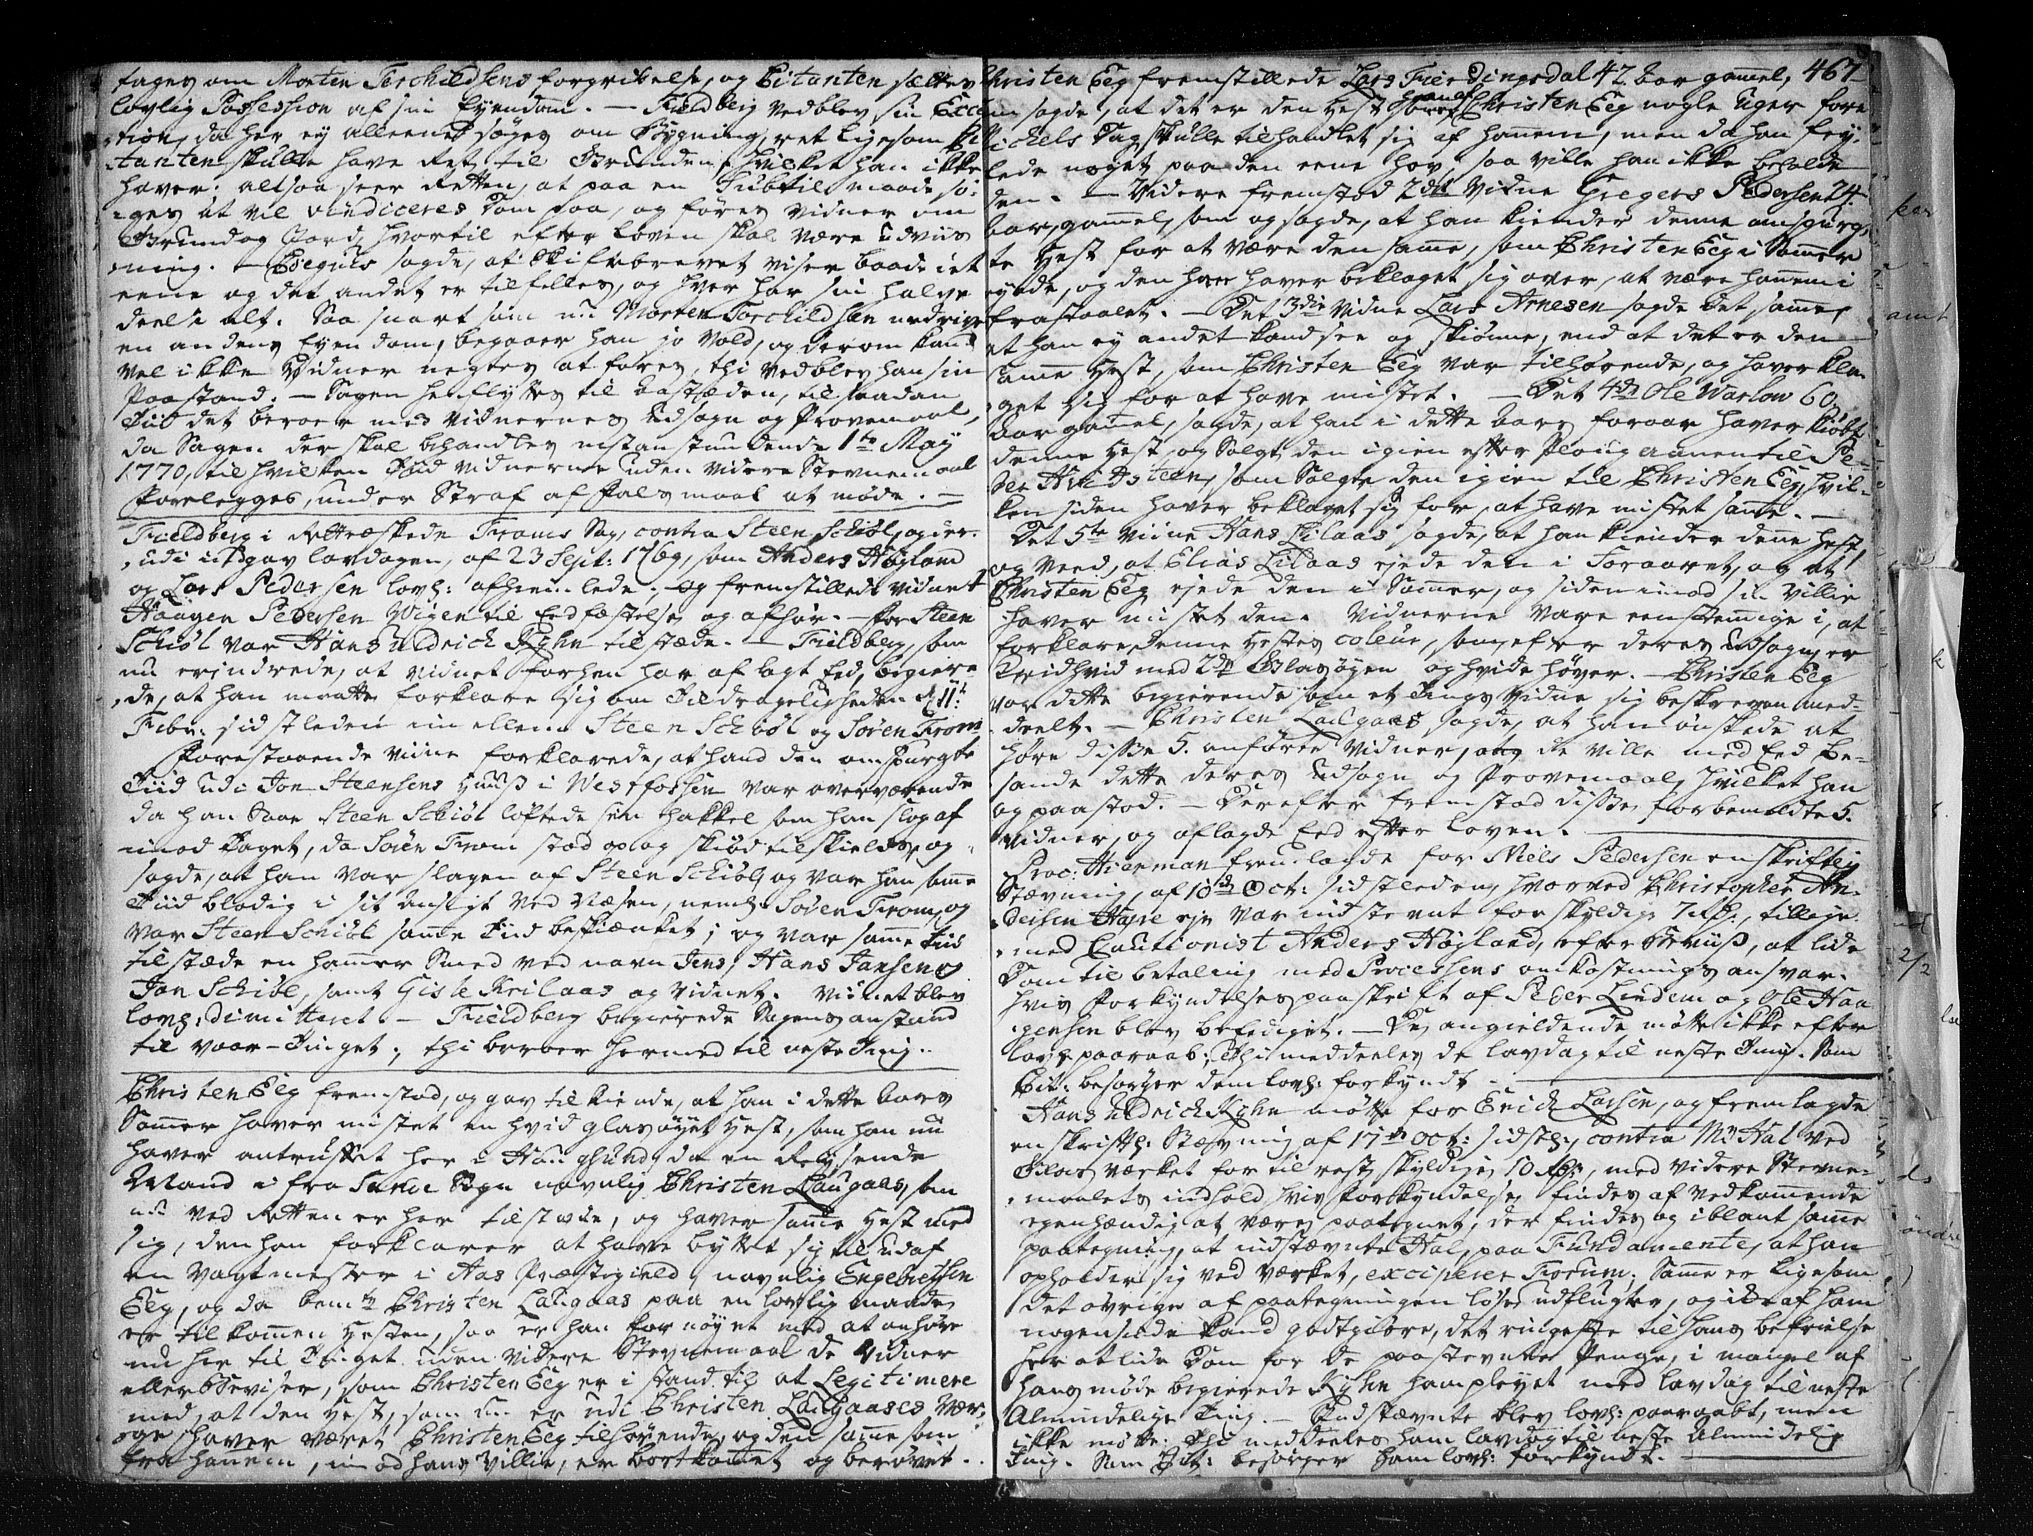 tages om Morten Torchildsens forgribelse, og Citanten sættes
lovlig Possession af sin Eyendom. — Fieldberg vedblev sin Excep
tion, da her ey alleeneste søges om Bygning, ret ligesom Ci
tanten skulle have Ret til Grunden, hvilket han ikke
haver. altsaa seer Retten, at paa en Subtil maade sø-
ges at vil vindiceres Dom paa, og føres vidner om
Grund og Jord, hvortil efter Loven skal være udviis
ning. — sagde, at Skiftebrevet viser baade i et
eene og det andet er tilfelles, og hver har sin halve
deel i alt. Saa snart som nu Morten Torchildsen nedriver
en andens Eyendom, begaaer han jo vold, og derom kand
vel ikke vidner negtes at føres, thi vedblev han sin
Paastand. — Sagen henflyttes til Aastæden, til saadan
Tiid det beroer med vidnernes udsagn og Provemaal,
da Sagen der skal behandles nestanstundende 1te May
1770, til hvilken Tiid vidnerne uden videre Stevnemaal
forelegges, under Straf af Falsmaal at møde. —
Fieldberg i Rettæskede Froms Sag, contra Steen Schiøl, og er-
udi udgav lavdagen, af 23 Sept: 1769, som Anders Høgland
og Lars Pedersen lovl: afhiemlede. og fremstillede vidnet
Haagen Pedersen Wigen til Eedfæstelse og afhør. — for Steen
Schiøl var Hans uldrich Kyhn tilstæde. — Fieldberg, som
nu erindrede, at vidnet forhen har aflagt Eed, begiere
de, at han maatte forklare sig om Tildrageligheden d. 11te
Febr: sidstleden imellem Steen Schiøl og Søren From
Forestaaende vidne forklarede, at hand den omspurgte
Tiid udi Jon Steensens Huus i Westfossen var overværende
da han Saae Steen Schiøl løftede sin hakkel som han slog af
imod Taget, da Søren From stod op og skiød til skields, og
sagde, at han var slagen af Steen Schiøl, og var han samme
Tiid blodig i sit ansigt ved Næsen, neml: Søren From, og
var Steen Schiøl samme Tiid beskiænket; og var samme Tiid
tilstæde en hammer Smed ved navn Jens, Hans Jansen og
Jon Schiøl, samt Gisle Krilaas og vidnet. Vidnet blev
lovl: dimitteret. — Fieldberg begierede Sagens anstand
til vaar-Tinget; thi beroer hermed til neste Ting.
Christen Eeg fremstod, og gav tilkiende, at han i dette Aars
Sommer haver mistet en hvid glasøyet Hest, som han nu
haver antruffet her i Haugsund da en Reysende
Mand i fra Sande Sogn navnlig Christen Laugaas, som
nu ved Retten er her tilstæde, og haver samme Hest med
sig, den han forklarer at have byttet sig til udaf
en vagtmester i Aas Præstegield, navnlig Engebretsen
Eeg, og da bemte Christen Laugaas paa en lovlig maade
er tilkommen Hesten, saa er han fornøyet med at anhøre
nu her til Tinget uden videre Stevnemaal de vidner
eller Beviser, som Christen Eeg er i stand til at Legitimere
med, at den Hest, som nu er udi Christen Laugaases vær-
ge, haver været Christen Eeg tilhørende, og den samme som
fra hannem, imod hans villie, er bortkommet og berøvet.
467
Christen Eeg fremstillede Lars Fierdingsdal 42. Aar gammel,
som sagde, at det er den Hest som Christen Eeg nogle Uger fore
Michels Dag skulle tilhandlet sig af hannem, men da han fey-
lede noget paa den eene hov, saa ville han ikke beholde
den. — Videre fremstod 2det vidne Gregers Pedersen 24.
Aar gammel, som og sagde, at han kiender denne omspurg-
te Hest for at være den samme, som Christen Eeg i Sommer
eyede, og den han haver beklaget sig over, at være hannem i
frastaalet. — Det 3die vidne Lars Arnesen sagde det samme,
at han ey andet kand see og skiønne, end at det er den
samme Hest, som Christen Eeg var tilhørende, og haver kla-
get sig for at have mistet. — Det 4de Ole Warlow 60
Aar gammel, sagde, at han i dette Aars foraar haver kiøbt
denne Hest, og Solgt den igien efter Ploug annen til Pe-
der Steen, som Solgte den igien til Christen Eeg, hvil-
ken siden haver beklaget sig for, at have mistet samme. —
Det 5te vidne Hans Lilaas sagde, at han kiender denne hest
og veed, at Elias Lilaas ejede den i Foraaret, og at
Christen Eeg ejede den i Sommer, og siden imod sin villie
haver mistet den. Vidnerne vare eenstemmige i, at
forklare denne Hestes coleur, som, efter deres udsagn, er
Kridhvid med 2de Glasøyen og hvide høver. — Christen Eeg
var dette begierende som et Tings vidne sig beskreven med-
deelt. — Christen Laugaas sagde, at han ønskede at
høre disse 5. anførte vidner, og de ville med Eed be-
sande dette deres udsagn og Provemaal, hvilket han
og paastod. — Derefter fremstod disse forbemeldte 5.
vidner, og aflagde Eed efter loven.
Proc: Hierman fremlagde for Niels Pedersen en skriftlig
Stævning, af 10de Oct: sidstleden, hvorved Christopher An-
dersen var indstevnt for skyldige 7 rd., tillige-
med Cautionist Anders Høgland, efter Beviis, at lide
Dom til betaling med Processens omkostnings ansvar.
hvis Forkyndelses paaskrift af Peder Lindem og Ole Haa-
gensen blev beediget. — De angieldende møtte ikke efter
lovl: paaraab; Thi meddeeles de lavdag til neste Ting. Som
Cit: besørger dem lovl: forkyndt.
Hans uldrich Kyhn møtte for Erich Larsen, og fremlagde
en skriftl: Stævning af 17de Oct: sidstl:, contra Mr Hal ved
værket for til rest skyldige 10 rd:, med videre Stevne-
maalets indhold, hvis forkyndelse findes af vedkommende
egenhændig at være paategnet, der findes og iblant samme
paategning, at indstævnte Hal, paa Fundamente, at han
opholder sig ved værket, exciperer Forum. Samme er ligesom
det øvrige af paategningen løse udflugter, og ikke af ham
nogensinde kand godtgiøre, det ringeste til hans befrielse
her at lide Dom for de paastevnte Penge, i mangel af
hans møde begierede Kyhn ham pleyet med lavdag til neste
Almindelige Ting. — Indstævnte blev lovl: paaraabt, men
ikke møtte. Thi meddeeles ham lavdag til neste Almindelig
Ting. Som Cit: besørger ham lovl: forkyndt.